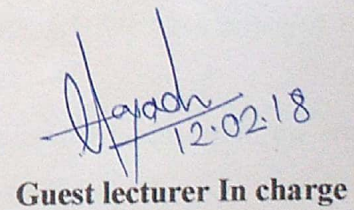 12.02.18
Guest lecturer In charge